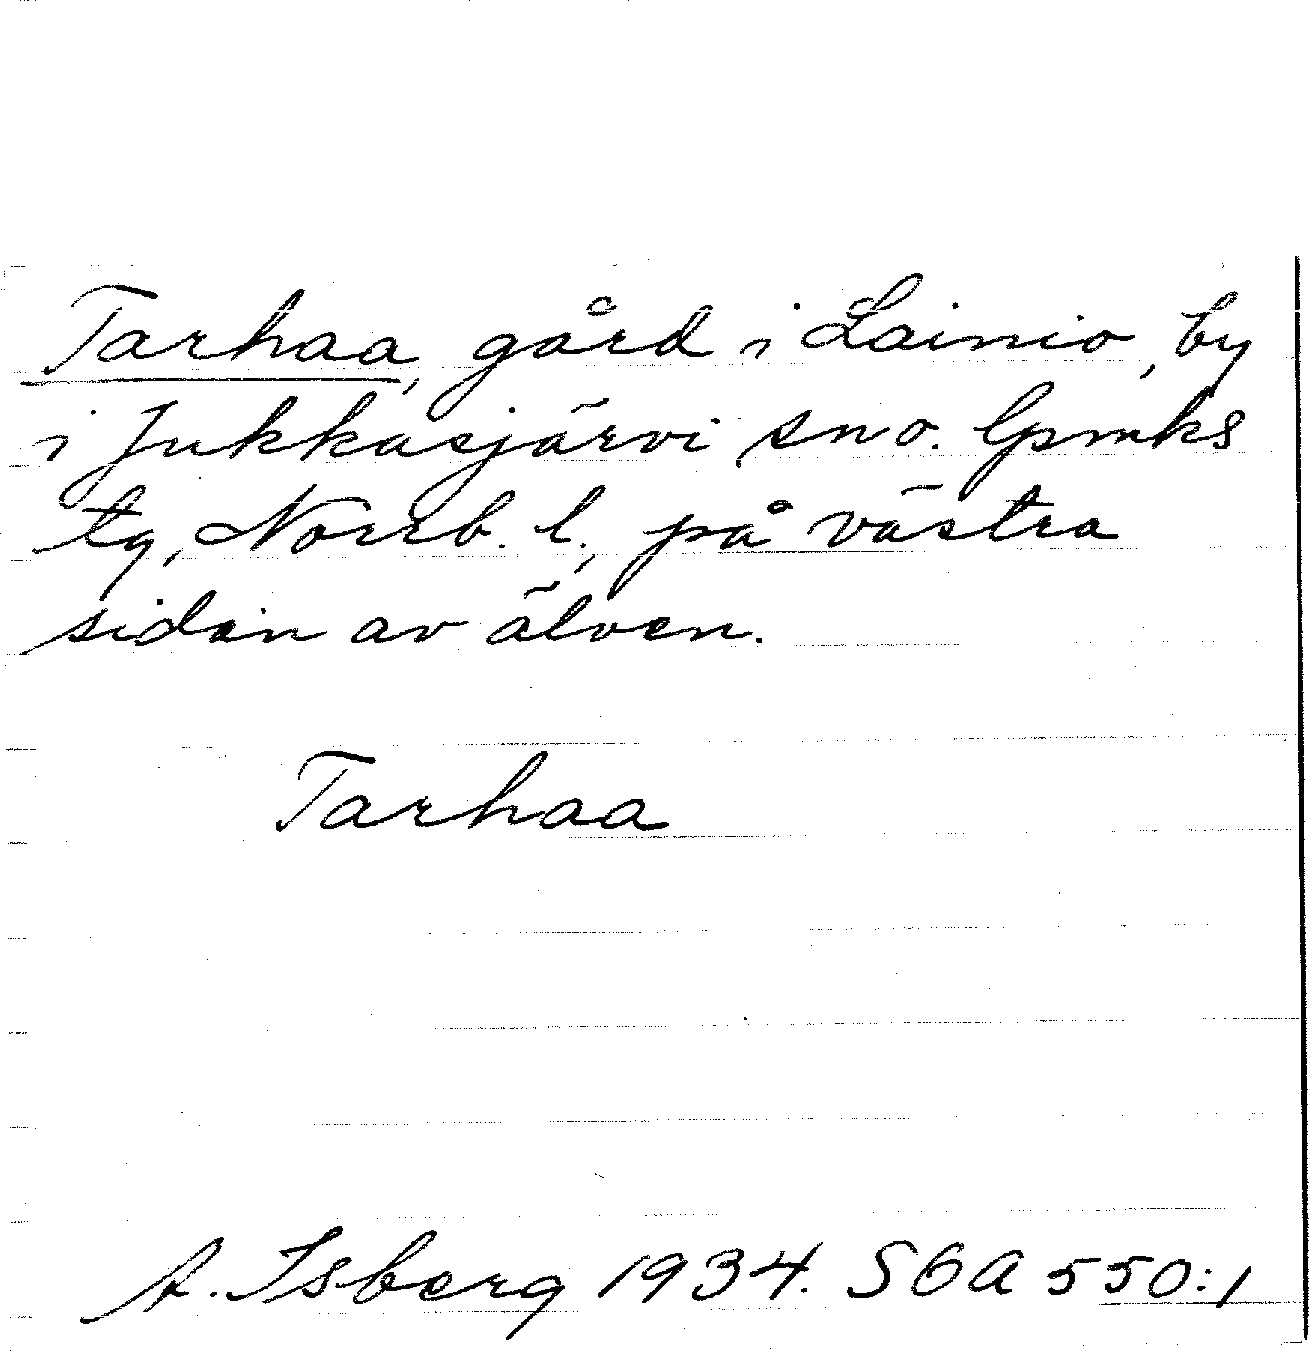 Tarhaa, gård i Lainio, by
i Jukkasjärvi sn o. lpmks
tg, Norrb. l., på västra
sidan av älven.
Tarhaa
A. Isberg 1934. SOA 550:1